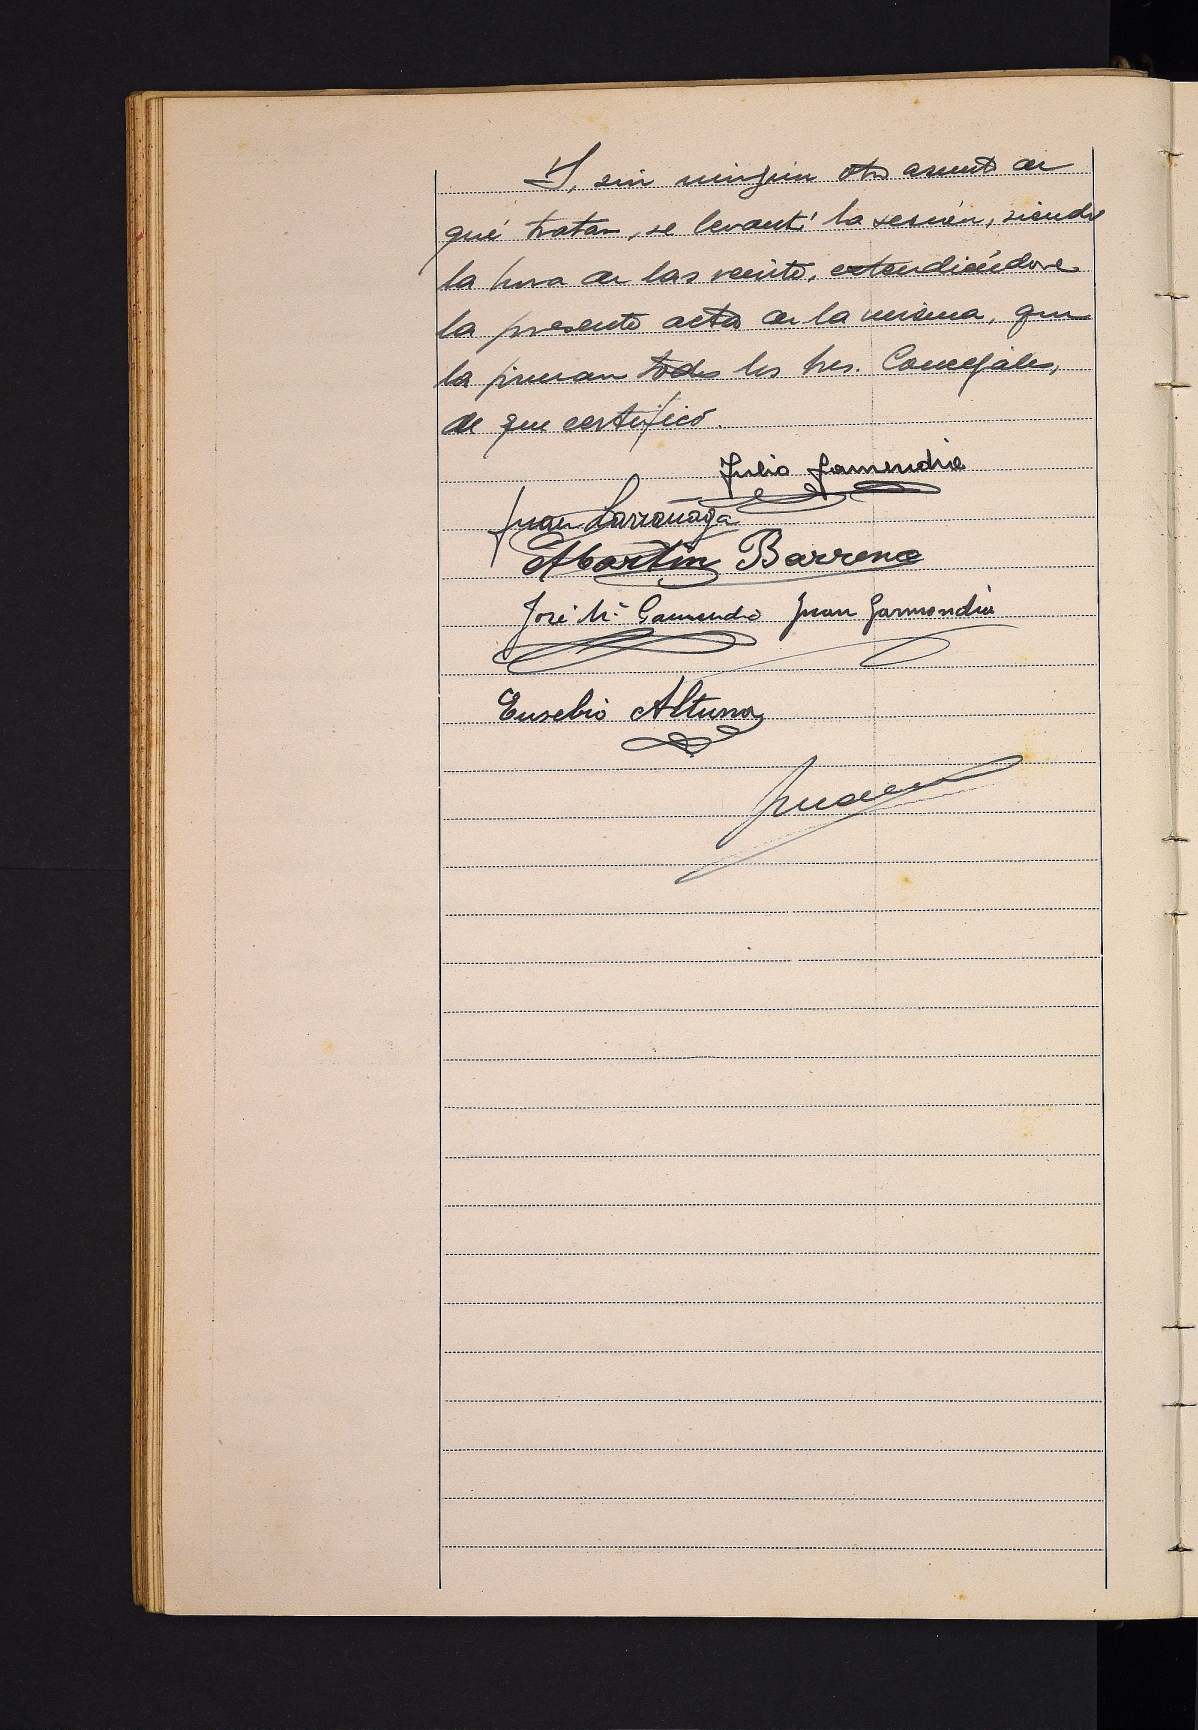 Y, sin ningún otro asunto de
qué tratar, se levantó la sesión, siendo
la hora de las veinte, extendiéndose
la presente acta de la misma, que
la firman todos los Sres. Concejales,
de que certifico.
Julio Garmendia
Juan Larrañaga
Martin Barrena
José Mª Garmendia Juan Garmendia
Eusebio Altuna